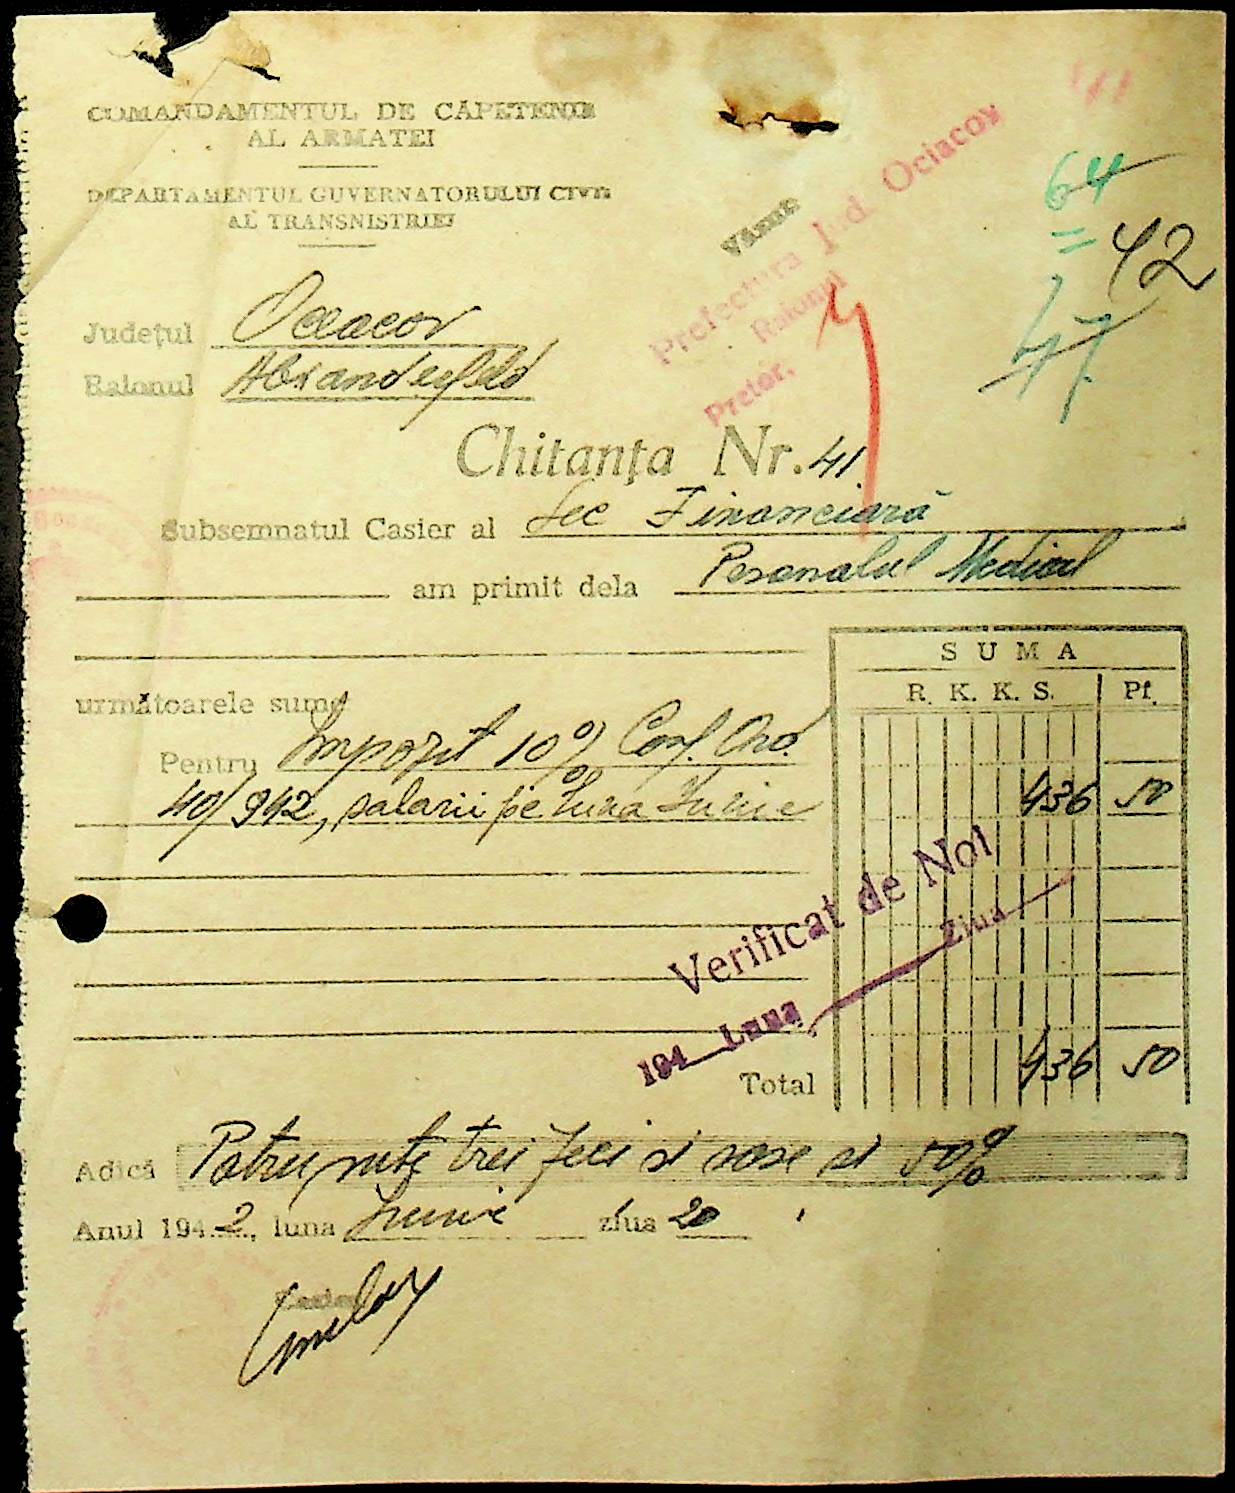 COMANDAMENTUL DE CĂPETENIE
AL ARMATEI
DEPARTAMENTUL GUVERNATORULUI CIVIL
AL TRANSNISTRIEI
Văzut
Prefectura Jud. Ociacov
Raionul
Pretor,
64
= 42
47
Județul Oceacov
Raionul Alexanderfeld
Chitanța Nr. 41
Subsemnatul Casier al Sec Financiară
am primit dela Pesonalul Medical
SUMA
R. K. K. S. Pf.
următoarele sume
Pentru Impozit 10% Conf. Ord.
40/942, salarii pe luna Iunie 436 50
Verificat de Noi
194 Luna Ziua
Total 436 50
Adică Patru sute trei zeci si sase si 50%
Anul 1942, luna Iunie ziua 20
Casier